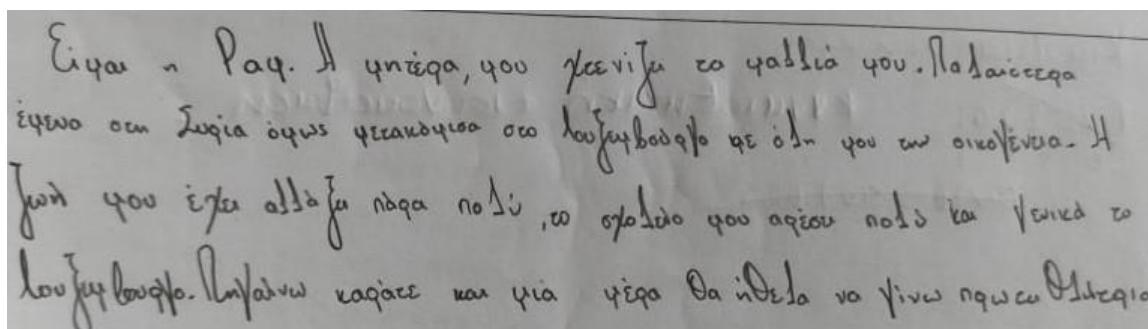 Είμαι η Ραφ. Η μητέρα, μου χτενίζη τα μαλλιά μου. Παλαιότερα
έμενα στη Συρία όμως μετακόμισα στο Λουξεμβούργο με όλη μου την οικογένεια. Η
ζωή μου έχει αλλάξει πάρα πολύ, το σχολείο μου αρέσει πολύ και γενικά το
Λουξεμβούργο. Πηγαίνω καράτε και μία μέρα θα ήθελα να γίνω